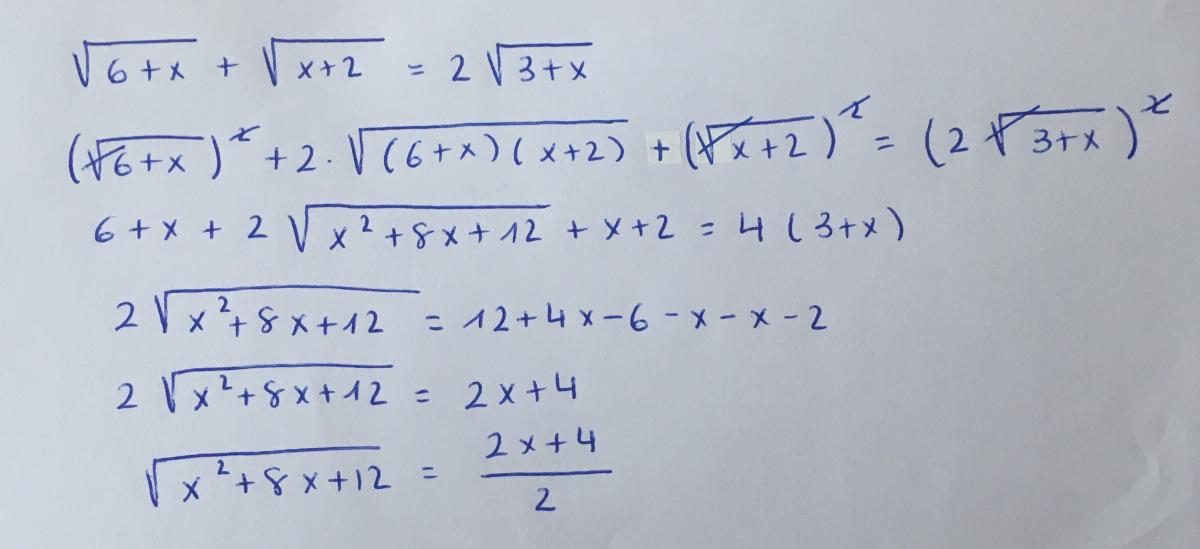 √(6+x) + √(x+2) = 2√(3+x)
(√(6+x))² + 2·√((6+x)(x+2)) + (√(x+2))² = (2√(3+x))²
6+x + 2√(x²+8x+12) + x+2 = 4(3+x)
2√(x²+8x+12) = 12+4x-6-x-x-2
2√(x²+8x+12) = 2x+4
√(x²+8x+12) = (2x+4)/2